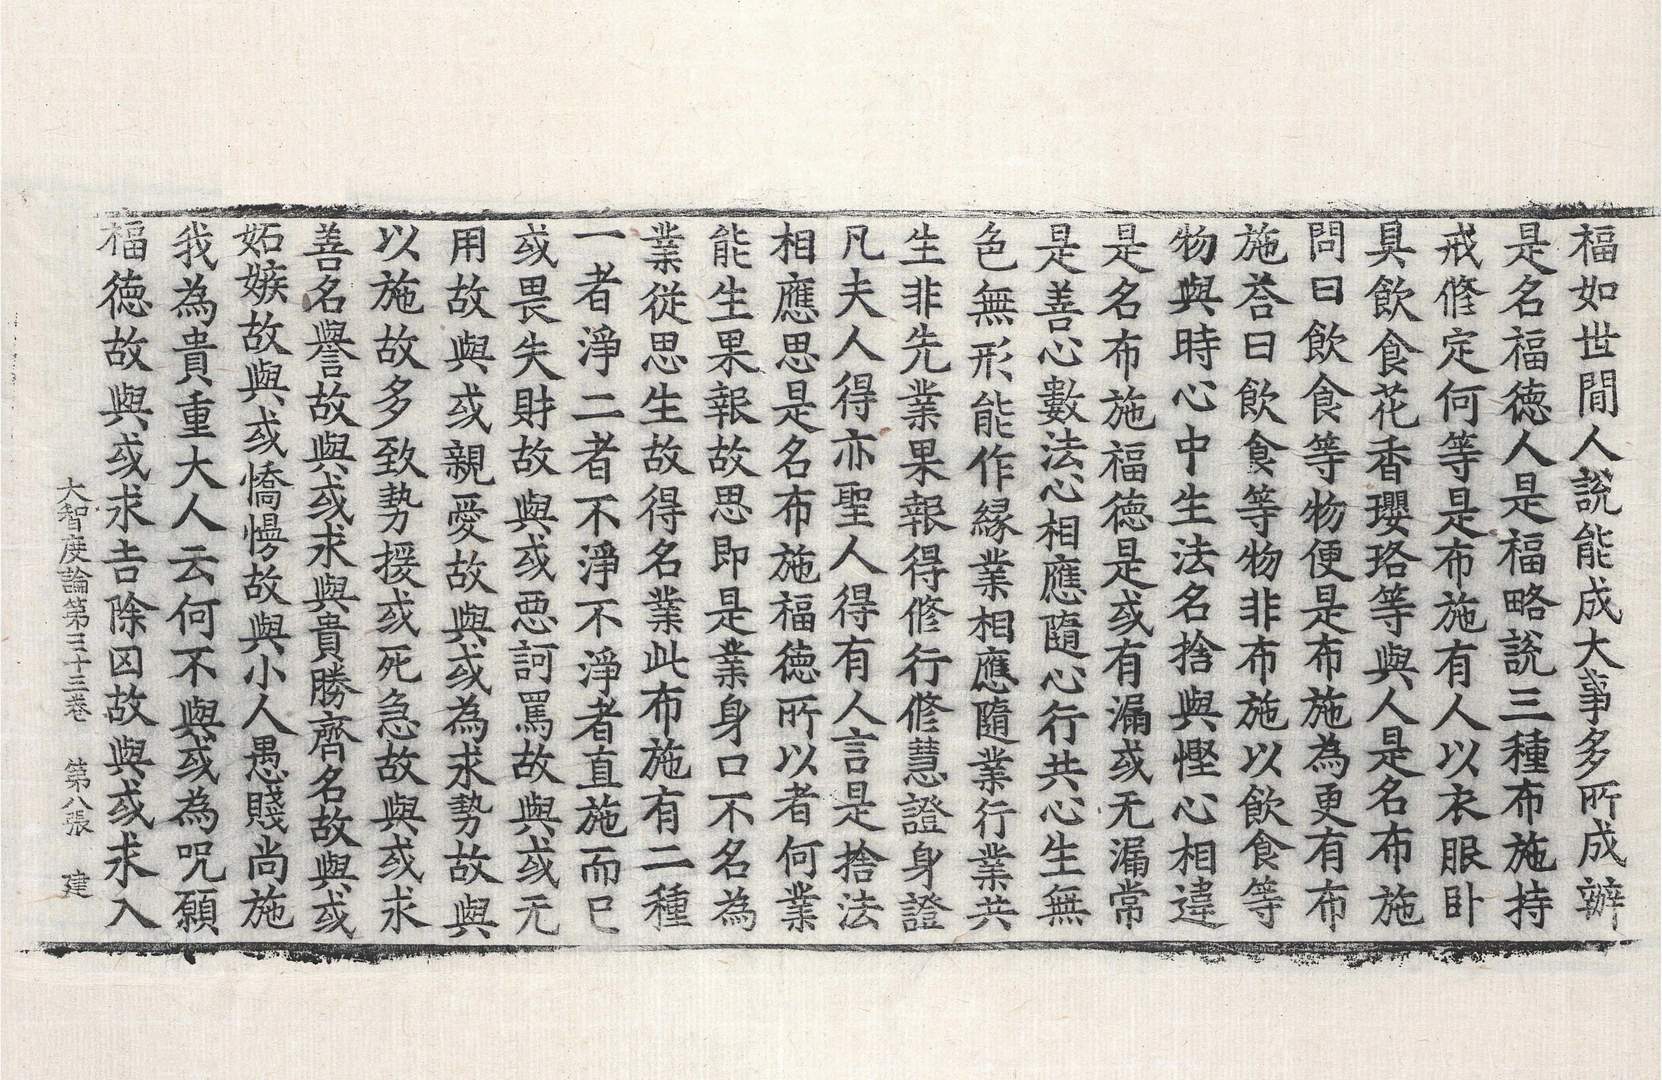 福如世間人說能成大事多所成辦
是名福德人是福略說三種布施持
戒修定何等是布施有人以衣服卧
具飲食花香瓔珞等與人是名布施
問曰飲食等物便是布施為更有布
施荅曰飲食等物非布施以飲食等
物與時心中生法名捨與慳心相違
是名布施福德是或有漏或无漏常
是善心數法心相應隨心行共心生無
色無形能作緣業相應隨業行業共
生非先業果報得修行修慧證身證
凡夫人得亦聖人得有人言是捨法
相應思是名布施福德所以者何業
能生果報故思即是業身口不名為
業從思生故得名業此布施有二種
一者淨二者不淨不淨者直施而已
或畏失財故與或惡訶罵故與或无
用故與或親愛故與或為求勢故與
以施故多致勢援或死急故與或求
善名譽故與或求與貴勝齊名故與或
妬嫉故與或憍慢故與小人愚賤尚施
我為貴重大人云何不與或為呪願
福德故與或求吉除凶故與或求入
大智度論第三十三卷 第八張 建